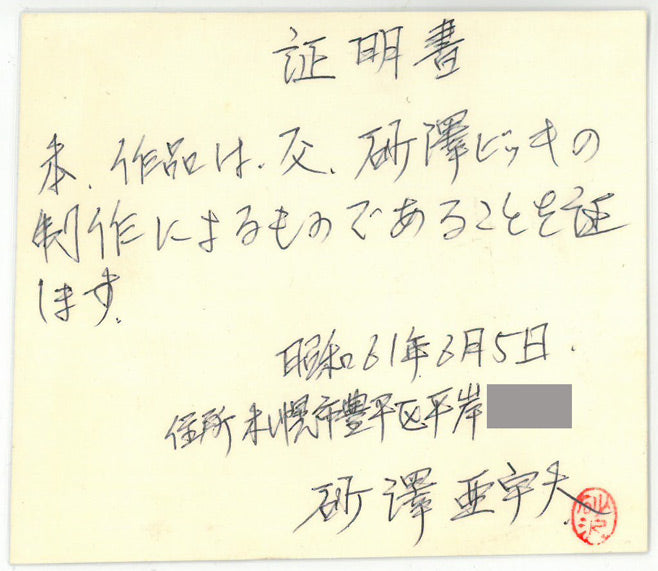 証明書
本、作品は、父、砂澤ビッキの
制作によるものであることを証
します。
昭和61年6月5日.
住所 札幌市豊平区平岸
砂澤 亜宇夫
砂沢